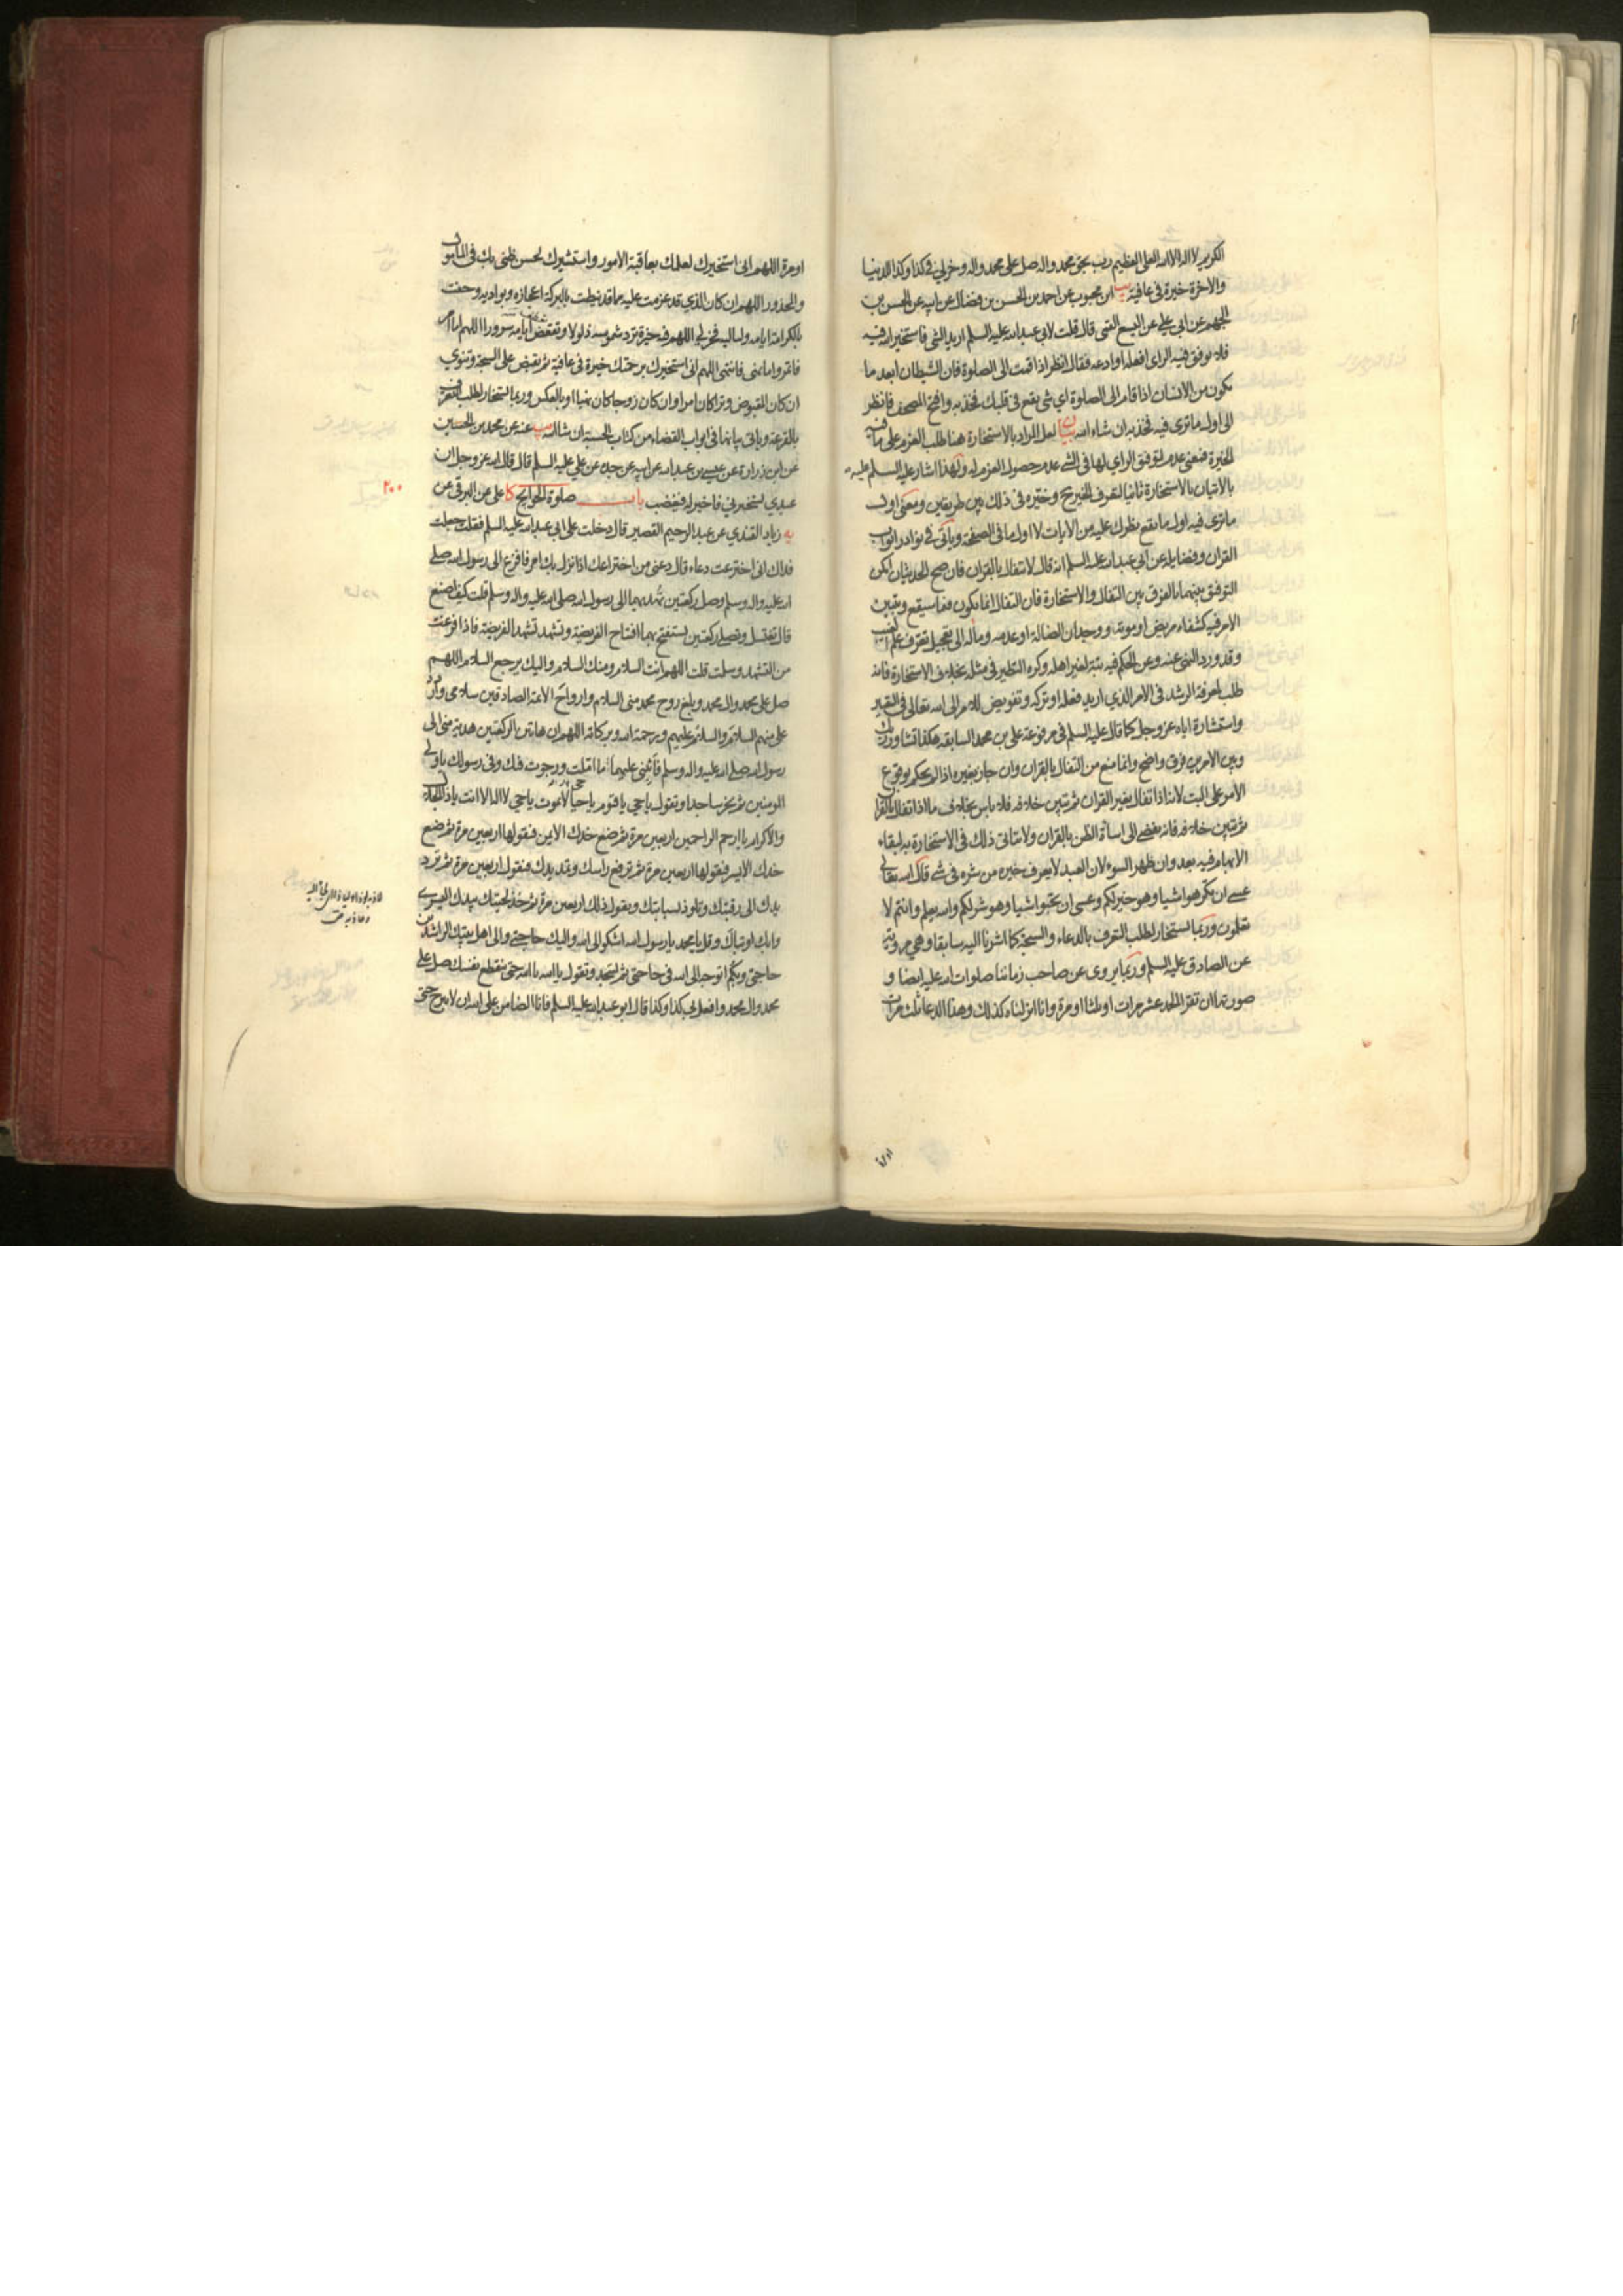 الكريم لا اله الا الله العلى العظيم رب بحق محمد واله صل على محمد واله وخر لي في كذا وكذا للدنيا
والاخرة خيرة فى عافية يب ابن محبوب عن احمد بن الحسن بن فضال عن ابيه عن الحسن بن
الجهم عن ابى على عن اليسع القمى قال قلت لابي عبد الله عليه السلم اريد الشئ فاستخير الله فيه
فلا يوفق فيه الراى افعله او ادعه فقال انظر اذا قمت الى الصلوة فان الشيطان ابعد ما
يكون من الانسان اذا قام الى الصلوة اي شئ يقع فى قلبك فخذ به وافتح المصحف فانظر
الى اول ما ترى فيه فخذ به ان شاء الله بيان لعل المراد بالاستخارة هنا طلب العزم على ما فيه
الخيرة فمعنى عدم توفيق الراي لها فى الشئ عدم حصول العزم له ولهذا اشار عليه السلم عليه
بالاتيان بالاستخارة ثانيا لتعرف الخير وخيره فى ذلك بين طريقين ومعنى اول
ما ترى فيه اول ما يقع نظرك عليه من الايات لا اول ما فى الصفحة وياتى في نوادر ابواب
القران وفضايله عن ابي عبد الله عليه السلم انه قال لا تتفال بالقران فان صح الحديثان امكن
التوفيق بينهما بالفرق بين التفال والاستخارة فان التفال انما يكون فيما سيقع ويتبين
الامر فيه كشفاء مريض او موته ووجدان الضالة او عدمه وماله الى تعجيل تعرف علم الغيب
وقد ورد النهى عنه وعن الحكم فيه بتة لغير اهله وكره التطير فى مثله بخلاف الاستخارة فانه
طلب لمعرفة الرشد فى الامر الذي اريد فعله او تركه وتفويض للامر الى الله تعالى فى التعيير
واستشارة اياه عز وجل كما قال عليه السلم فى مرفوعة على بن محمد السابقة هكذا تشاور ربك
وبين الامرين فرق واضح وانما منع من التفال بالقران وان جاز بغيره اذا لم يحكم بوقوع
الامر على البت لانه اذا تفال بغير القران ثم تبين خلافه فلا باس بخلاف ما اذا تفال بالقران
ثم تبين خلافه فانه يفضى الى اساءة الظن بالقران ولا يتاتى ذلك فى الاستخارة به لبقاء
الابهام فيه بعد وان ظهر السوء لان العبد لا يعرف خيره من شره فى شئ قال الله تعالى
عسى ان تكرهوا شيا وهو خير لكم وعسى ان تحبوا شيا وهو شر لكم والله يعلم وانتم لا
تعلمون وربما يستخار لطلب التعرف بالدعاء والسبحة كما اشرنا اليه سابقا وهي مروية
عن الصادق عليه السلم وربما يروى عن صاحب زماننا صلوات الله عليه ايضا و
صورتها ان تقرا الحمد عشر مرات او ثلثا او مرة وانا انزلناه كذلك وهذا الدعا ثلث مرات
او مرة اللهم انى استخيرك لعلمك بعاقبة الامور واستشيرك لحسن ظنى بك فى المامول
والمحذور اللهم ان كان الذي قد عزمت عليه مما قد نيطت بالبركة اعجازه وبواديه وحفت
بالكرامة ايامه ولياليه فخر لي اللهم فيه خيرة ترد شموسه ذلولا وتقعض ايامه سرورا اللهم اما امر
فائتمر واما نهى فانتهى اللهم انى استخيرك برحمتك خيرة فى عافية ثم يقبض على السبحة وتنوي
ان كان المقبوض وترا كان امرا وان كان زوجا كان نهيا او بالعكس وربما يستخار لطلب التعرف
بالقرعة وياتى بيانها فى ابواب القضاء من كتاب الحسبة ان شاء الله يب عنه عن محمد بن الحسين
عن ابن زرارة عن عيسى بن عبد الله عن ابيه عن جده عن علي عليه السلم قال قال الله عز وجل ان
عبدي يستخيرني فاخير له فيغضب باب صلوة الحوايج كا على عن البرقى عن
٢٠٠
يه زياد القندي عن عبد الرحيم القصير قال دخلت على ابى عبد الله عليه السلم فقلت جعلت
فداك انى اخترعت دعاء قال دعنى من اختراعك اذا نزل بك امر فافزع الى رسول الله صلى
الله عليه واله وسلم وصل ركعتين تهديهما الى رسول الله صلى الله عليه واله وسلم قلت كيف اصنع
قال تغتسل وتصلى ركعتين تستفتح بهما افتتاح الفريضة وتشهد تشهد الفريضة فاذا فرغت
من التشهد وسلمت قلت اللهم انت السلام ومنك السلام واليك يرجع السلام اللهم
صل على محمد وال محمد وبلغ روح محمد منى السلام وارواح الائمة الصادقين سلامى واردد
على منهم السلام والسلام عليهم ورحمة الله وبركاته اللهم ان هاتين الركعتين هدية منى الى
رسول الله صلى الله عليه واله وسلم فاثبنى عليهما ما املت ورجوت فيك وفى رسولك يا ولي
المومنين ثم يخر ساجدا وتقول يا حي يا قيوم يا حيا لا يموت يا حي لا اله الا انت يا ذا الجلال
والاكرام يا ارحم الراحمين اربعين مرة ثم تضع خدك الايمن فتقولها اربعين مرة ثم تضع
خدك الايسر فتقولها اربعين مرة ثم ترفع راسك وتمد يدك فتقول اربعين مرة ثم ترد
يدك الى رقبتك وتلوذ بسبابتك وتقول ذلك اربعين مرة ثم خذ لحيتك بيدك اليسرى
وابك او تباك وقل يا محمد يا رسول الله اشكو الى الله واليك حاجتى والى اهل بيتك الراشدين
حاجتى وبكم اتوجه الى الله فى حاجتى ثم تسجد وتقول يا الله يا الله حتى ينقطع نفسك صل على
محمد وال محمد وافعل بي كذا وكذا قال ابو عبد الله عليه السلم فانا الضامن على الله ان لا يبرح حتى